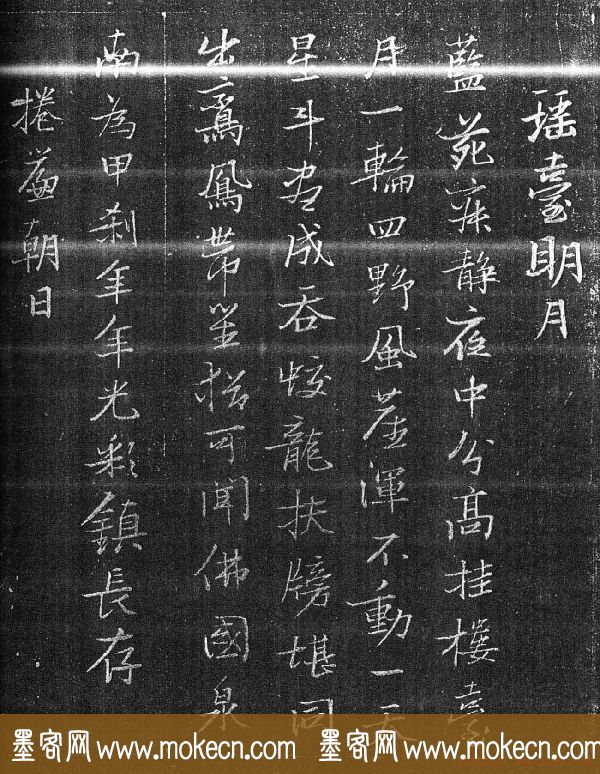 瑶臺明月
藍菀寂静夜中分高挂樓臺
月一輪四野風塵渾不動一天
星斗盡成吞蛟龍扶牓堪同
出鸞鳳帶笙猶可聞佛國泉
南為甲刹年年光彩鎮長存
捲簾朝日
墨客网 www.mokecn.com 墨客网 www.mokecn.com